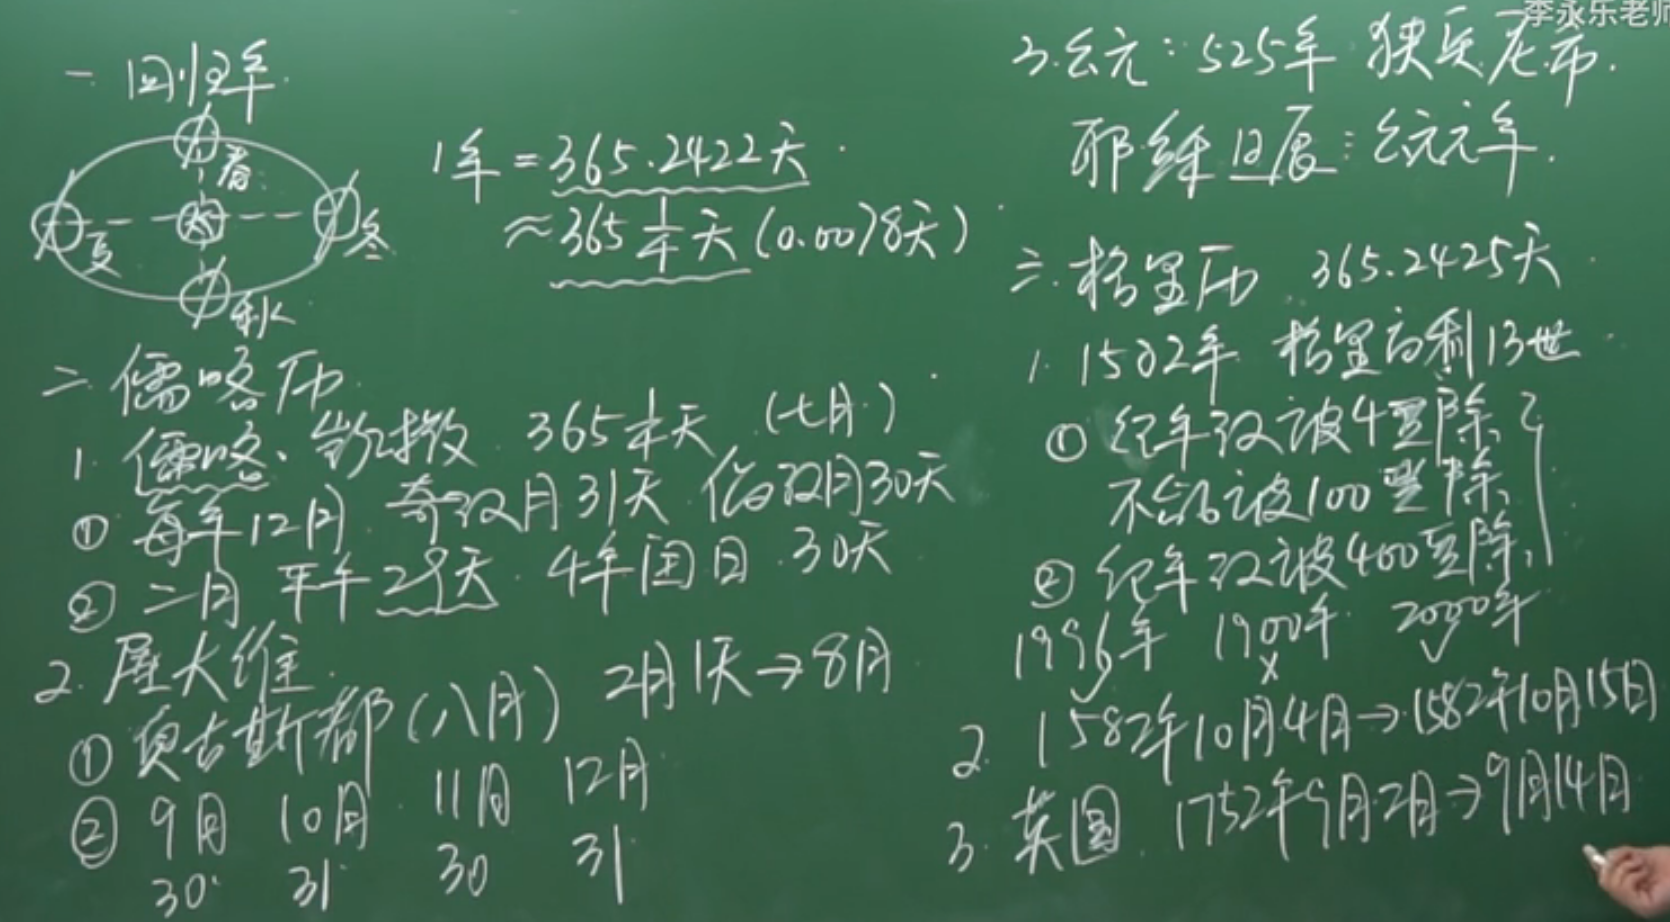 一.回归年.
春
夏
太
冬
秋
1年=365.2422天
≈365 1/4 天(0.0078天)
二.儒略历.
1.儒略·凯撒 365 1/4 天 (七月)
①每年12月 奇数月31天 偶数月30天
②二月 平年29天 4年闰日 30天
2.屋大维.
2月1天→8月
①奥古斯都(八月)
②9月 10月 11月 12月
30 31 30 31
李永乐老师
3.公元:525年 狄奥尼希.
耶稣日辰:公元元年.
三.格里历 365.2425天
1.1582年 格里高利13世
①纪年数被4整除
不能被100整除
②纪年数被400整除
1996年 1900年 2000年
2. 1582年10月4月→1582年10月15日
3.英国 1752年9月2月→9月14日